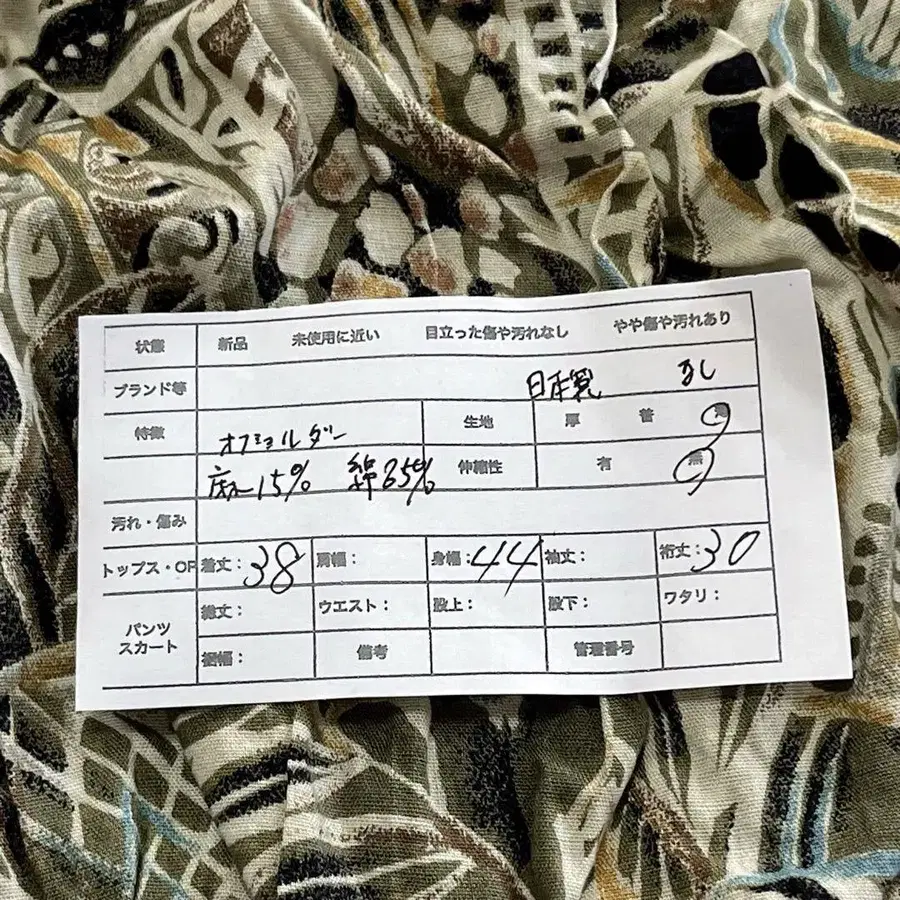 状態 新品 未使用に近い 目立った傷や汚れなし やや傷や汚れあり
ブランド等 日本製
特徴 オフショルダー 生地 厚 普 薄
麻15% 綿85% 伸縮性 有 無
汚れ・傷み
トップス・OP 着丈:38 肩幅: 身幅:44 袖丈: 裄丈:30
パンツ スカート 総丈: ウエスト: 股上: 股下: ワタリ:
裾幅: 備考 管理番号